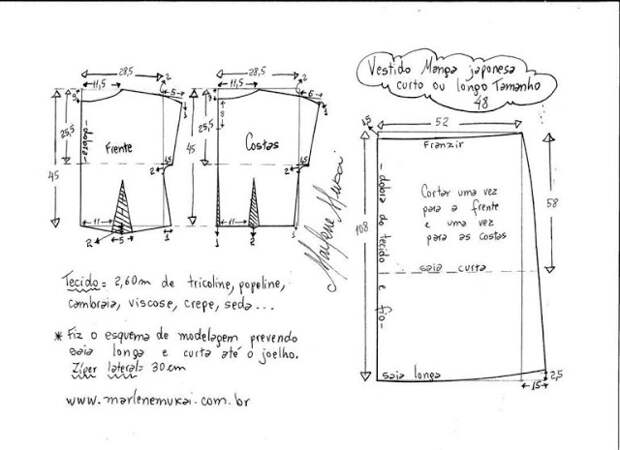 Vestido Manga japonesa
curto ou longo Tamanho
48
28,5
2
11,5
6
3
1
25,5
45
-dobra-
Frente
1,5
2
11
2
5
1
28,5
2
11,5
6
3
8
1
25,5
45
Costas
1,5
2
11
1
2
1
Marlene Mukai
1,5
52
Franzir
108
58
-dobra do tecido e fio-
Cortar uma vez
para a frente
e uma vez
para as costas
saia curta
saia longa
15
2,5
Tecido = 2,60m de tricoline, popeline,
cambraia, viscose, crepe, seda...
* Fiz o esquema de modelagem prevendo
saia longa e curta até o joelho.
Zíper lateral= 30cm
www.marlenemukai.com.br